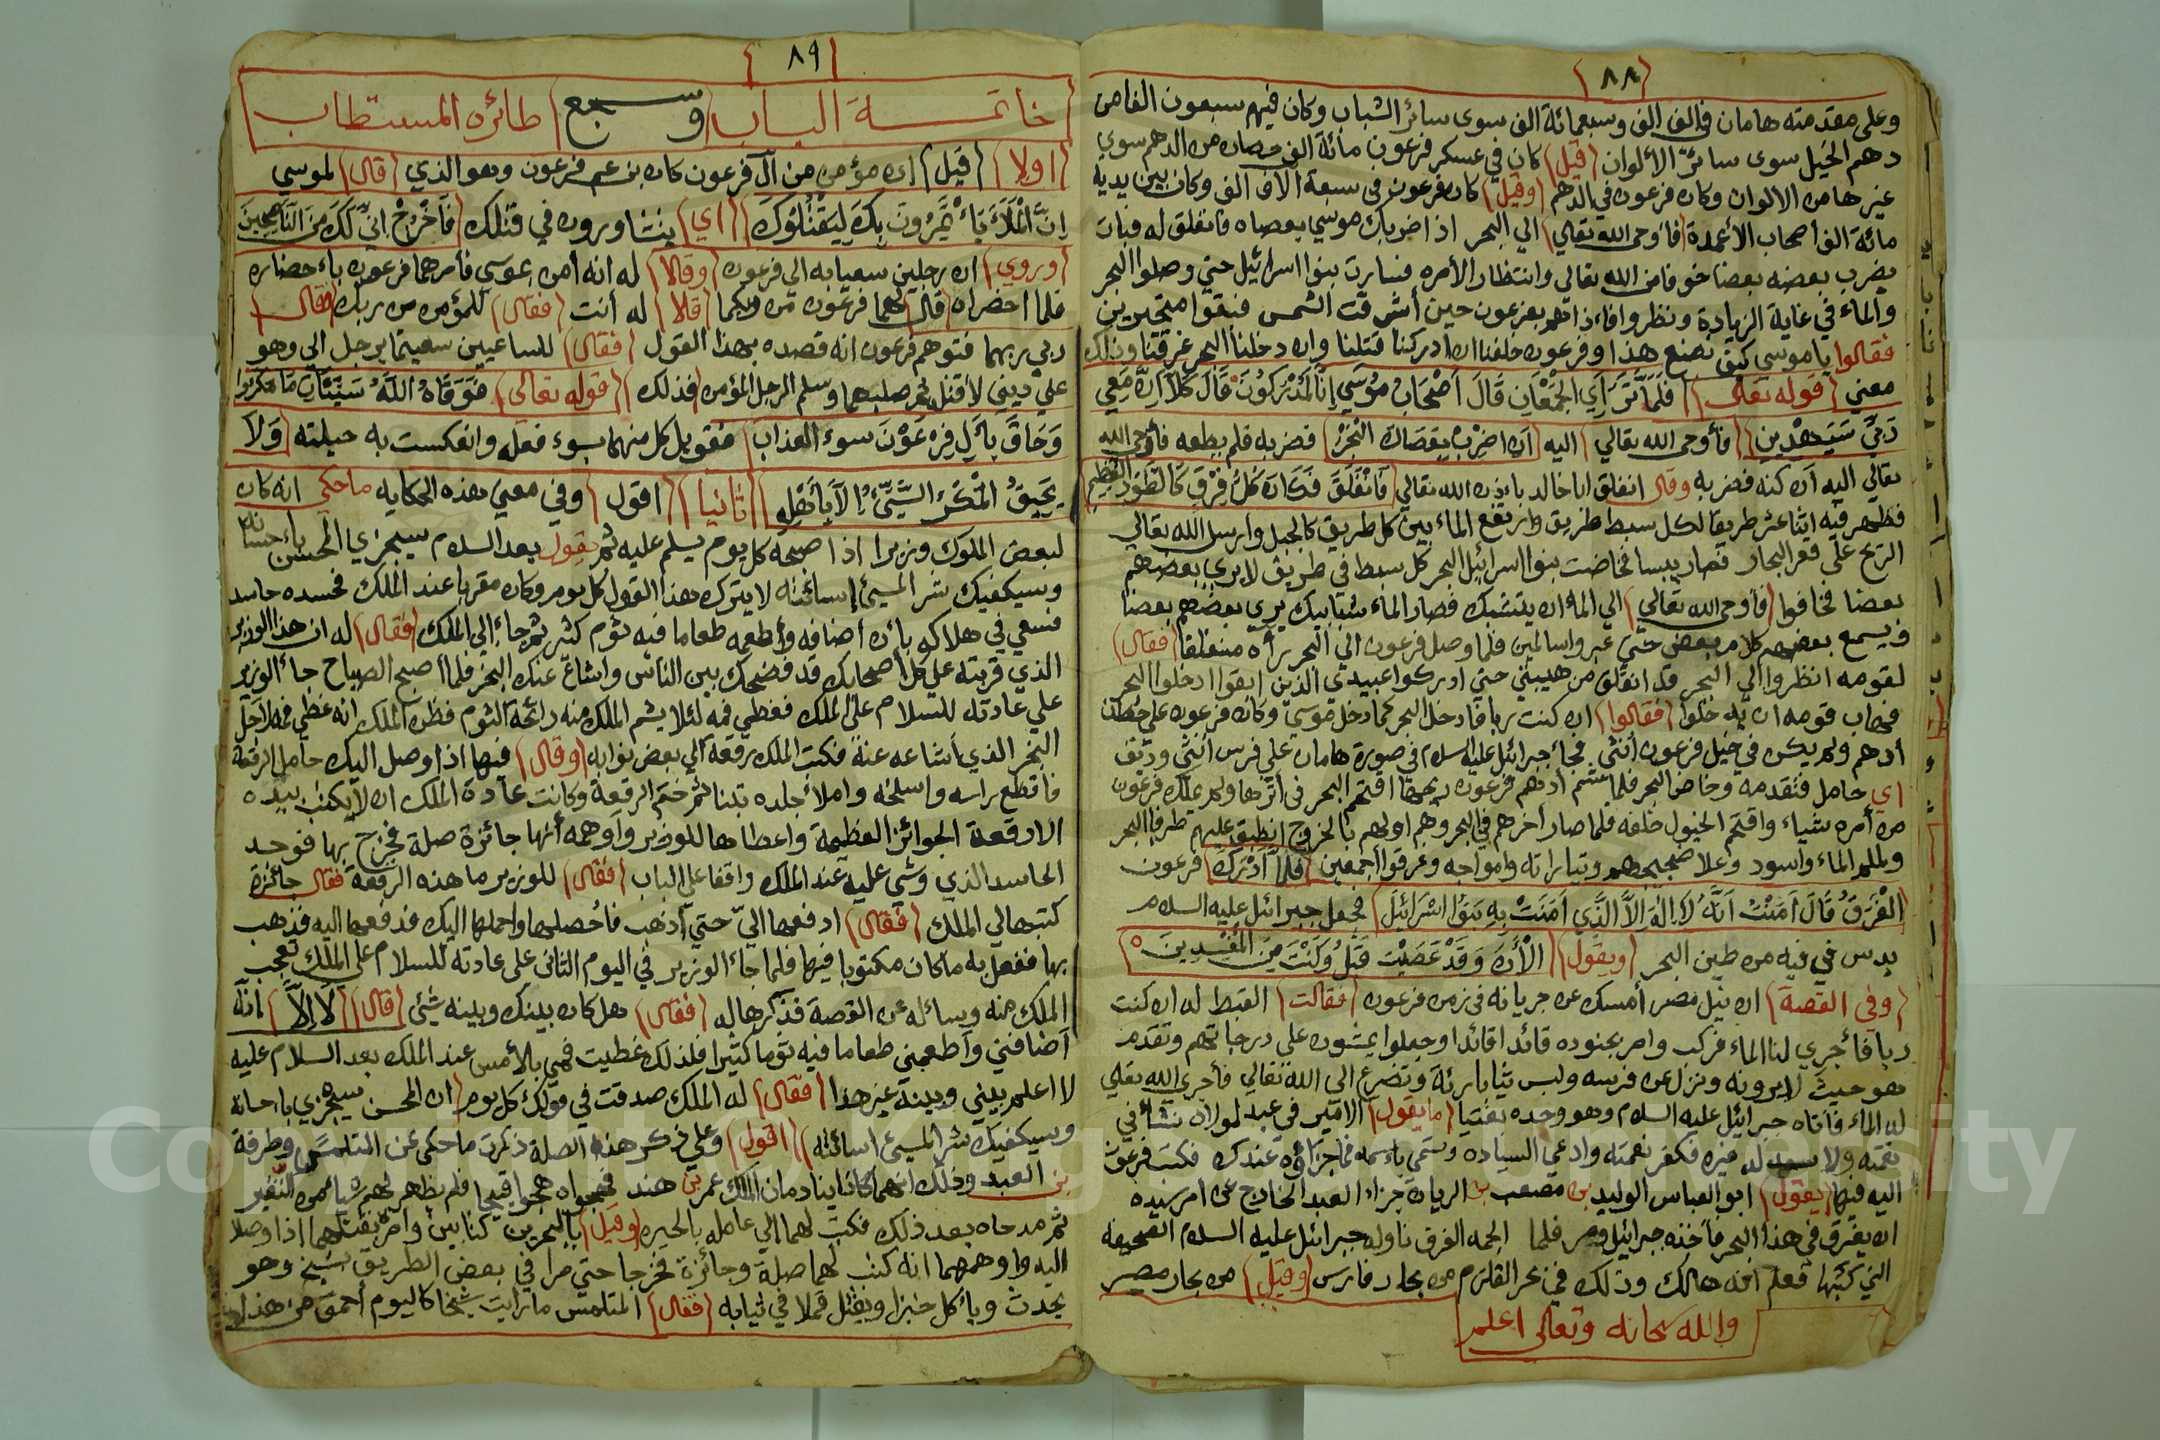 ٨٨
وعلى مقدمته هامان في الف الف وسبعمائة الف سوى سائر الشباب وكان فيهم سبعون الفا من
دهم الخيل سوى سائر الألوان قيل كان في عسكر فرعون مائة الف حصان من الدهم سوي
غيرها من الالوان وكان فرعون في الدهم وقيل كان فرعون في سبعة الاف الف وكان بين يديه
مائة الف أصحاب الأعمدة فأوحى الله تعالي الي البحر اذا ضربك موسي بعصاه فانفلق له فبات
يضرب بعضه بعضا خوفا من الله تعالى وانتظار الأمره فسارت بنوا اسرائيل حتي وصلوا البحر
والماء في غاية الزيادة ونظروا فاءذا هم بفرعون حين أشرقت الشمس فبقوا متحيرين
فقالوا يا موسى كيف نصنع هذا وفرعون خلفنا ان ادركنا قتلنا وان دخلنا البحر غرقنا وذلك
معني قوله تعالى فَلَمَّا تَرَايَ الجَمْعَانِ قَالَ اَصْحَابُ مُوْسَي اِنَّا لَمُدْرَكُونَ قَالَ كَلَّا اِنَّ مَعِي
رَبِّيْ سَيَهْدِينِ فأوحى الله تعالي اليه اَنِ اضْرِبْ بِعَصَاكَ الْبَحْرَ فضربه فلم يطعه فأوحى الله
تعالى اليه أن كنه فضربه وقال انفلق ابا خالد باءذن الله تعالي فَانْفَلَقَ فَكَانَ كُلُّ فِرْقٍ كَالطَّوْدِ العَظِيمِ
فظهر فيه اثنا عشر طريقا لكل سبط طريق وارتفع الماء بين كل طريق كالجبل وأرسل الله تعالي
الريح على قعر البحار فصار يبسا فخاضت بنوا اسرائيل البحر كل سبط في طريق لا يري بعضهم
بعضا فخافوا فأوحى الله تعالي الي الماء ان يتشبك فصار الماء شبابيك يري بعضهم بعضا
ويسمع بعضهم كلام بعض حتي عبروا سالمين فلما وصل فرعون الي البحر رأه منفلقا فقال
لقومه انظروا الي البحر قد انفلق من هيبتي حتي ادركوا عبيدي الذين ابقوا ادخلوا البحر
فهاب قومه ان يدخلوا فقالوا ان كنت ربا فادخل البحر كما دخل موسي وكان فرعون على حصان
أدهم ولم يكن في خيل فرعون أنثى فجاء جبرائيل عليه السلام في صورة هامان على فرس أنثى وديق
اي حامل فتقدمه وخاض البحر فلما شم أدهم فرعون ريحها اقتحم البحر في أثرها ولم يملك فرعون
من أمره شياء واقتحم الخيول خلفه فلما صار أخرهم في البحر وهم اولهم بالخروج انطبق عليهم طرفا البحر
وتلاطم الماء واسود وعلا ضجيجهم وتياراته وامواجه وغرقوا اجمعين فَلَمَّا اَدْرَكَ فرعون
الْغَرَقُ قَالَ آمَنْتُ اَنَّهُ لَا اِلَهَ اِلاَّ الَّذِي آمَنَتْ بِهِ بَنُوا اِسْرَائِيْلَ فجعل جبرائيل عليه السلام
يدس في فيه من طين البحر ويقول الْأَنَ وَقَدْ عَصَيْتَ قَبْلُ وَكُنْتَ مِنَ الْمُفْسِدِينَ
وفى القصة ان نيل مصر أمسك عن جريانه في زمن فرعون فقالت القبط له ان كنت
ربا فأجري لنا الماء فركب وامر بجنوده قائدا قائدا وجعلوا يمشون على درجاتهم وتقدم
هو حيث لا يرونه ونزل عن فرسه ولبس ثيابا رثة وتضرع الى الله تعالي فأجرى الله تعلي
له الماء فأتاه جبرائيل عليه السلام وهو وحده بفتيا ما يقول الامير في عبد لمولاه نشأ في
نعمته ولا سيد له غيره فكفر نعمته وادعي السياده وتسمى باءسمه فما جزاؤه عندك فكتب فرعون
اليه فيها يقول ابو العباس الوليد بن مصعب بن الريان جزاء العبد الخارج عن امر سيده
ان يغرق في هذا البحر فأخذه جبرائيل ومر فلما الجمه الغرق ناوله جبرائيل عليه السلام الصحيفه
التي كتبها فعلم انه هالك وذلك في بحر القلزم من بحار فارس وقيل من بحار مصر
والله سبحانه وتعالى اعلم
٨٩
خاتمة الباب وسجع طائره المستطاب
اولا قيل ان مؤمن من آل فرعون كان بن عم فرعون وهو الذي قال لموسي
اِنَّ الْمَلَأَ يَأْتَمِرُونَ بِكَ لِيَقْتُلُوكَ اي يتشاورون في قتلك فَاخْرُجْ اِنِّي لَكَ مِنَ النَّاصِحِينَ
وروي ان رجلين سعيا به الي فرعون وقالا له انه أمن بموسي فأمرهما فرعون باءحضاره
فلما احضراه قال لهما فرعون من ربكما قالا له أنت فقال للمؤمن من ربك فقال
ربي ربهما فتوهم فرعون انه قصده بهذا القول فقال للساعيين سعيتما برجل الي وهو
علي ديني لأقتل ثم صلبهما وسلم الرجل المؤمن فذلك قوله تعالي فَوَقَاهُ اللَّهُ سَيِّئَاتِ مَا مَكَرُوا
وَحَاقَ بِآلِ فِرْعَوْنَ سوء العذاب فقوبل كل منهما بسوء فعله وانعكست به حيلته وَلاَ
يَحِيْقُ الْمَكْرُ السَّيِّئُ اِلاَّ بِأَهْلِهِ ثانيا اقول وفي معني هذه الحكايه ماحكي انه كان
لبعض الملوك وزيرا اذا صبحه كل يوم يسلم عليه ثم يقول بعد السلام سيجزي المحسن باءحسانه
وسيكفيك شر المسيئ اسائته لا يترك هذا القول كل يوم وكان مقربا عند الملك فحسده حاسد
فسعي في هلاكه بأن أضافه وأطعمه طعاما فيه ثوم كثير ثم جاء الي الملك فقال له ان هذا الوزير
الذي قربته على كل أصحابك قد فضحك بين الناس واشاع عنك البخر فلما اصبح الصباح جاء الوزير
علي عادته للسلام على الملك فغطي فمه لئلا يشم الملك منه رائحة الثوم فظن الملك انه غطي فمه لاجل
البخر الذي أشاعه عنه فكتب الملك رقعة الي بعض نوابه وقال فيها اذا وصل اليك حامل الرقعة
فاقطع راسه واسلخه واملاء جلده تبنا ثم ختم الرقعة وكانت عادة الملك ان لا يكتب بيده
الا رقعة الجوائز العظيمة واعطاها للوزير وأوهمه أنها جائزة صلة فخرج بها فوجد
الحاسد الذي وشي عليه عند الملك واقفا علي الباب فقال للوزير ما هذه الرقعة فقال جائزة
كتبها لي الملك فقال ادفعها اليّ حتي أذهب فأحصلها واحملها اليك فدفعها اليه فذهب
بها ففعل به ما كان مكتوبا فيها فلما جاء الوزير في اليوم الثاني على عادته للسلام على الملك تعجب
الملك منه وسائله عن القصة فذكرها له فقال هل كان بينك وبينه شئي قال لا اِلاَّ انه
أضافني وأطعمني طعاما فيه ثوما كثيرا فلذلك غطيت فمي بالأمس عند الملك بعد السلام عليه
لا اعلم بيني وبينه غير هذا فقال له الملك صدقت في قولك كل يوم ان المحسن سيجزي باحسانه
وسيكفيك شر المسيئ اسائته اقول وعلي ذكر هذه الصلة ذكرت ما حكى عن المتلمس وطرفة
بن العبد وذلك انهما كانا ينادمان الملك عمر بن هند فهجواه هجوا قبيحا فلم يظهر لهم شيأ من التغير
ثم مدحاه بعد ذلك فكتب لهما الي عامله بالحيره وقيل بالبحرين كتابين وأمره بقتلهما اذا وصلا
اليه واوهمهما انه كتب لهما صلة وجائزة فخرجا حتي مرا في بعض الطريق بشيخ وهو
يحدث وياءكل خبزا ويقتل قملا في ثيابه فقال المتلمس ما رايت شيخا كاليوم أحمق من هذا
Copyright © King Saud University